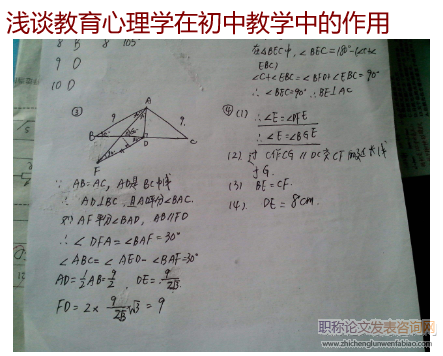 浅谈教育心理学在初中教学中的作用
8 B 8 105°
9 0
10 0
③
A
9
9
B
D
C
E
F
∵ AB=AC, AD是BC中线
∴ AD⊥BC, 且AD平分∠BAC.
又∵ AF平分∠BAD, AB∥FD
∴ ∠DFA=∠BAF=30°
∠ABC=∠AED-∠BAF=30°
在△BEC中, ∠BEC=180°-(∠C+∠EBC)
∠C+∠EBC=∠BFD+∠EBC=90°
∴ ∠BEC=90° ∴ BE⊥AC
④ (1) ∴∠E=∠DFE
∴∠E=∠BGE
于G.
(3) BE=CF.
(4) DE=8cm.
职称论文发表咨询网
www.zhichenglunwenfabiao.com